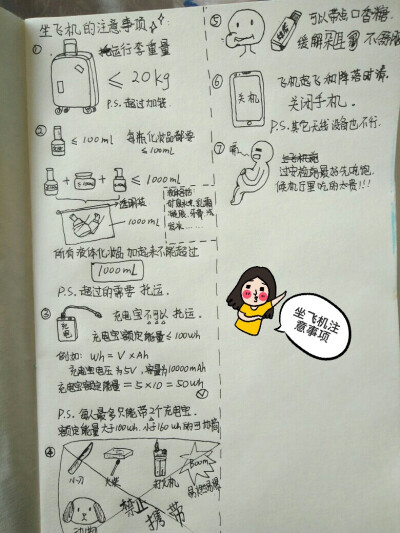 坐飞机的注意事项
①
托运行李重量
≤ 20kg
P.S. 超过加钱
②
≤ 100ml 每瓶化妆品都要
≤100ml
+ + ≤ 1000ml
透明袋
1000ml
所有液体化妆品加起来不能超过
1000ml
P.S. 超过的需要托运.
③
充电
充电宝不可以托运.
充电宝额定能量≤100wh
例如: Wh = V × Ah
充电宝电压为5V,容量为10000mAh
充电宝额定能量=5×10=50wh
P.S. 每人最多只能带2个充电宝.
额定能量大于100wh.小于160wh的可协商
④
小刀
火柴
打火机
Boom
易燃易爆
动物
禁止
携带
⑤
可以带点口香糖,
缓解耳 不舒服
⑥
关机
飞机起飞和降落时请
关闭手机.
P.S. 其它无线设备也不行.
⑦
过安检前最好先吃饱,
候机厅里吃的太贵!!!
坐飞机注
意事项